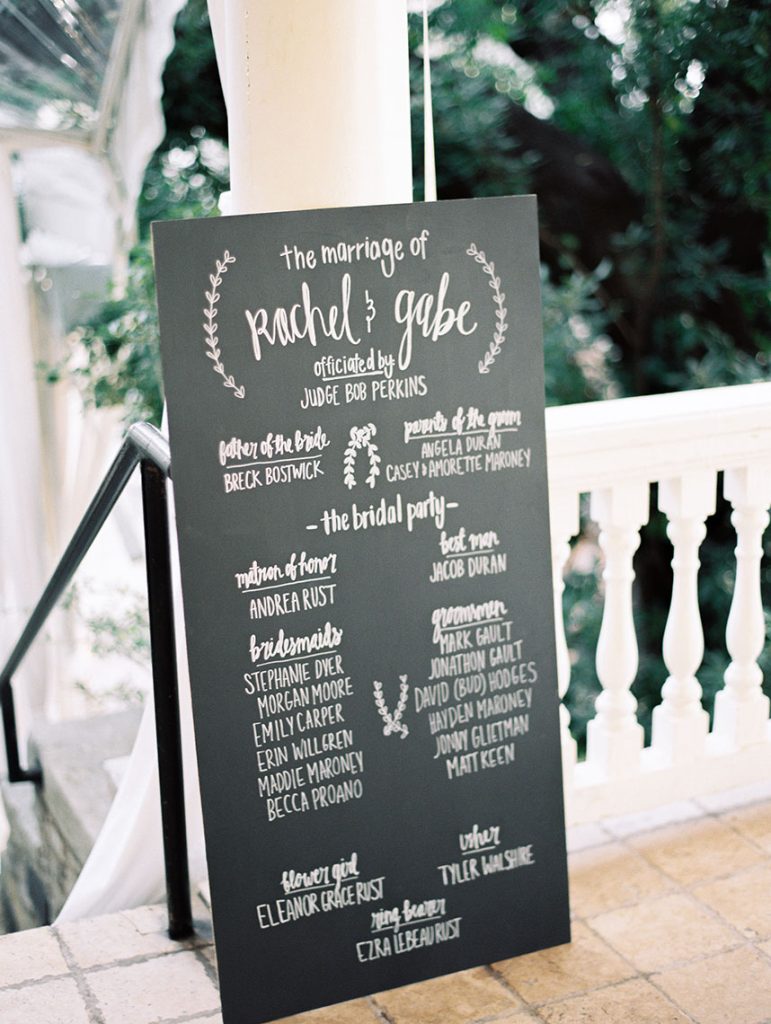 the marriage of
rachel & gabe
officiated by:
JUDGE BOB PERKINS
father of the bride
BRECK BOSTWICK
parents of the groom
ANGELA DURAN
CASEY & AMORETTE MARONEY
- the bridal party -
matron of honor
ANDREA RUST
best man
JACOB DURAN
bridesmaids
STEPHANIE DYER
MORGAN MOORE
EMILY CARPER
ERIN WILLGREN
MADDIE MARONEY
BECCA PROANO
groomsmen
MARK GAULT
JONATHON GAULT
DAVID (BUD) HODGES
HAYDEN MARONEY
JONNY GLIETMAN
MATT KEEN
usher
TYLER WALSHIRE
flower girl
ELEANOR GRACE RUST
ring bearer
EZRA LEBEAU RUST